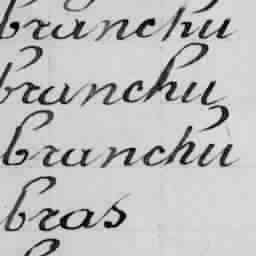 branchu
branchu
branchu
bras